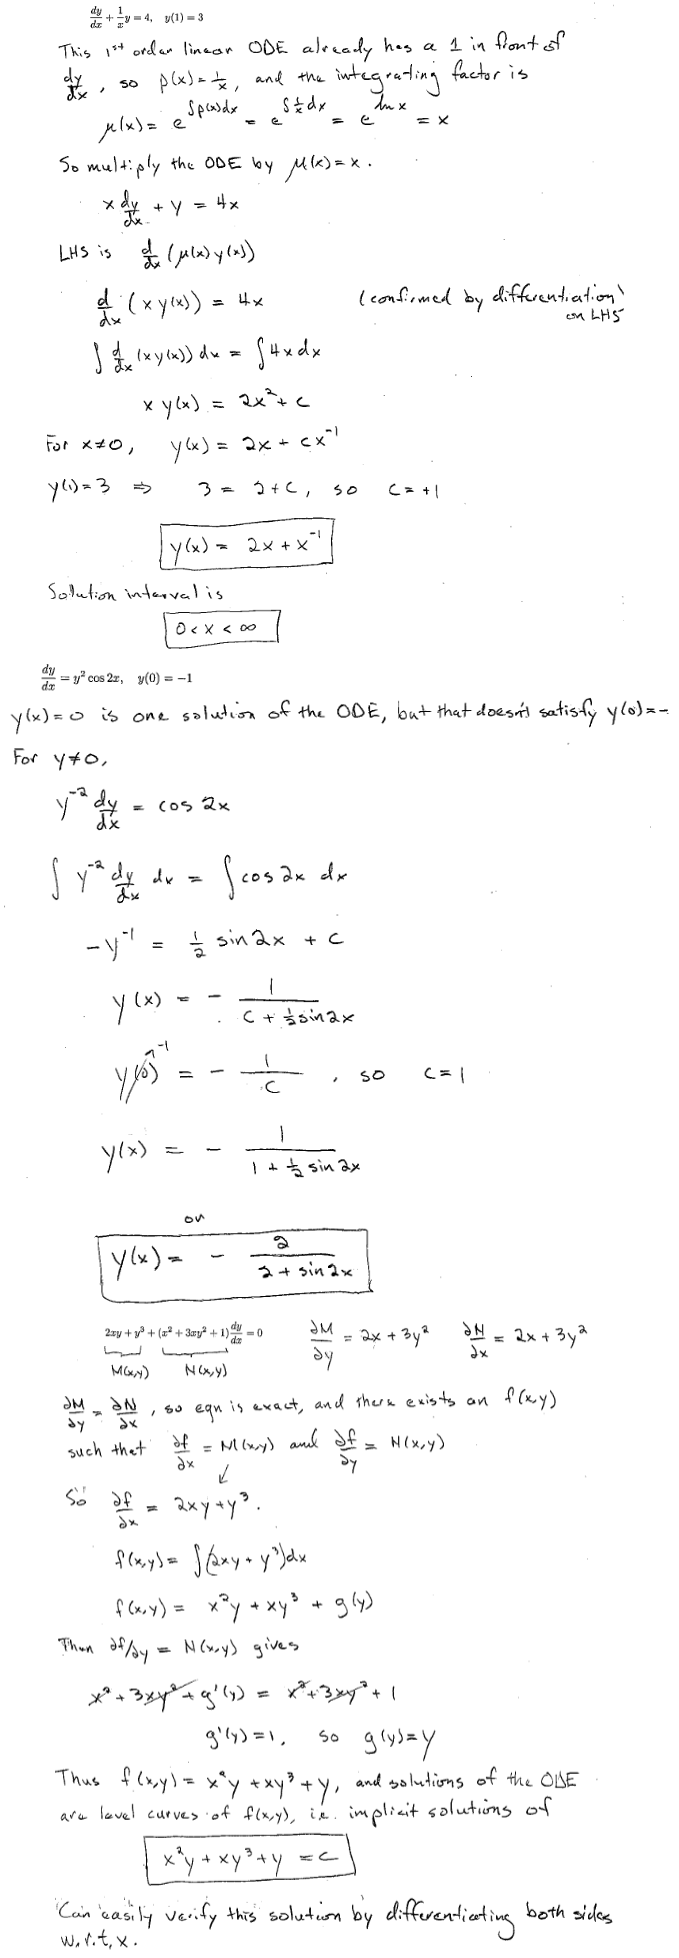 dy/dx + 1/x y = 4, y(1) = 3
This 1st order linear ODE already has a 1 in front of
dy/dx, so p(x) = 1/x, and the integrating factor is
μ(x) = e^∫p(x)dx = e^∫1/x dx = e^ln x = x
So multiply the ODE by μ(x) = x.
x dy/dx + y = 4x
LHS is d/dx (μ(x) y(x))
d/dx (x y(x)) = 4x (confirmed by differentiation
on LHS
∫ d/dx (x y(x)) dx = ∫ 4x dx
x y(x) = 2x² + c
For x≠0, y(x) = 2x + cx⁻¹
y(1) = 3 ⇒ 3 = 2 + C, so C = +1
y(x) = 2x + x⁻¹
Solution interval is
0 < x < ∞
dy/dx = y² cos 2x, y(0) = −1
y(x) = 0 is one solution of the ODE, but that doesn't satisfy y(0) = -
For y≠0,
y⁻² dy/dx = cos 2x
∫ y⁻² dy/dx dx = ∫ cos 2x dx
−y⁻¹ = 1/2 sin 2x + C
y(x) = − 1/(C + 1/2 sin 2x)
y(0) → -1 = − 1/C, so C = 1
y(x) = − 1/(1 + 1/2 sin 2x)
or
y(x) = − 2/(2 + sin 2x)
2xy + y³ + (x² + 3xy² + 1) dy/dx = 0 ∂M/∂y = 2x + 3y² ∂N/∂x = 2x + 3y²
M(x,y) N(x,y)
∂M/∂y = ∂N/∂x, so eqn is exact, and there exists an f(x,y)
such that ∂f/∂x = M(x,y) and ∂f/∂y = N(x,y)
So ∂f/∂x = 2xy + y³.
f(x,y) = ∫(2xy + y³)dx
f(x,y) = x²y + xy³ + g(y)
Then ∂f/∂y = N(x,y) gives
x² + 3xy² + g'(y) = x² + 3xy² + 1
g'(y) = 1, so g(y) = y
Thus f(x,y) = x²y + xy³ + y, and solutions of the ODE
are level curves of f(x,y), i.e. implicit solutions of
x²y + xy³ + y = c
Can easily verify this solution by differentiating both sides
w.r.t. x.